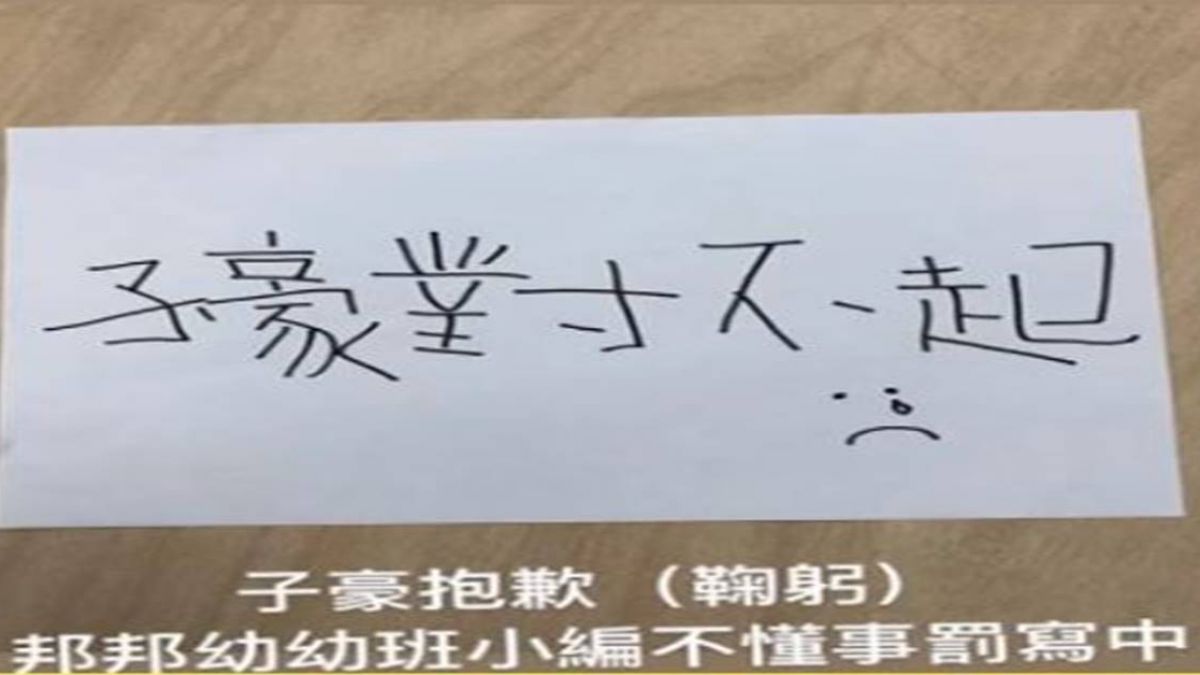 子豪對不起
子豪抱歉（鞠躬）
邦邦幼幼班小編不懂事罰寫中